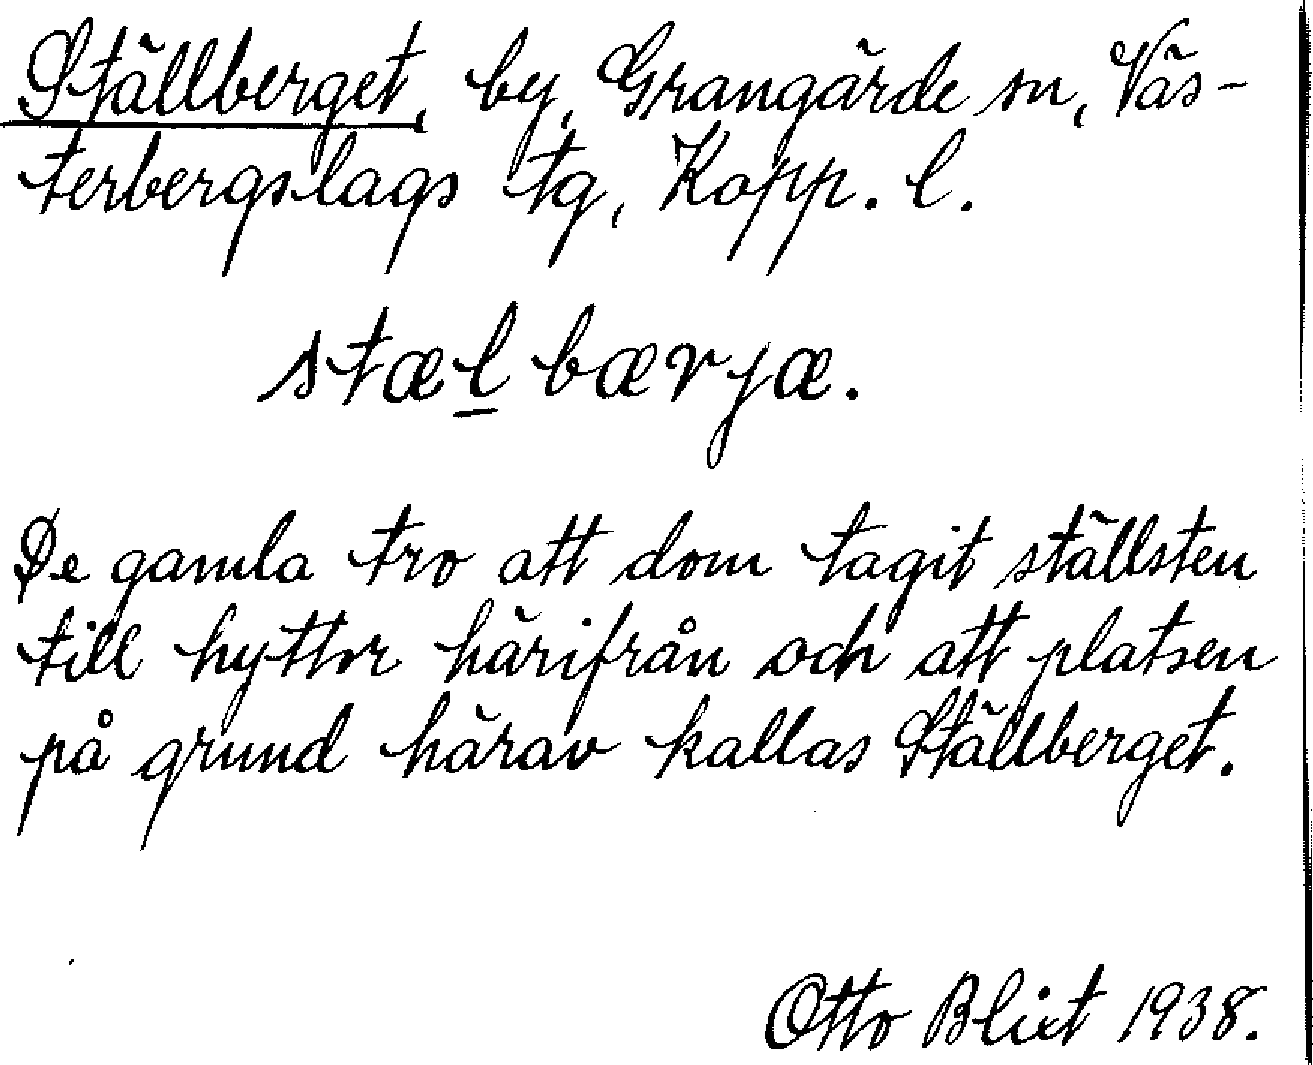 Ställberget, by, Grangärde sn, Väs-
terbergslags tg, Kopp. l.
stæl̲bærjæ.
De gamla tro att dom tagit ställsten
till hyttor härifrån och att platsen
på grund härav kallas Ställberget.
Otto Blixt 1938.